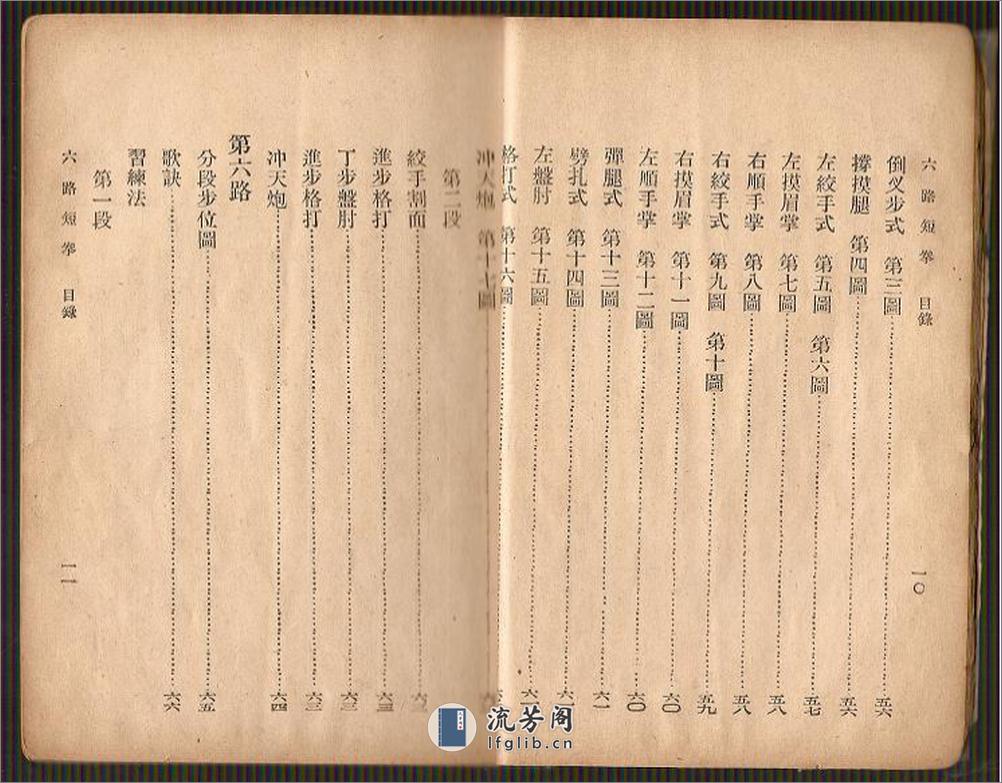 六路短拳 目錄 一〇
倒义步式 第三圖 五六
撐摸腿 第四圖 五六
左絞手式 第五圖 第六圖 五七
左摸眉掌 第七圖 五八
右順手掌 第八圖 五八
右絞手式 第九圖 第十圖 五九
右摸眉掌 第十一圖 六〇
左順手掌 第十二圖 六〇
彈腿式 第十三圖 六一
劈扎式 第十四圖
左盤肘 第十五圖
格打式 第十六圖
冲天炮 第十七圖
第二段
絞手割面
進步格打 六三
丁步盤肘 六三
進步格打 六三
冲天炮 六四
第六路
分段步位圖 六五
歌訣 六六
習練法
第一段
六路短拳 目錄 一一
流芳阁
lfglib.cn